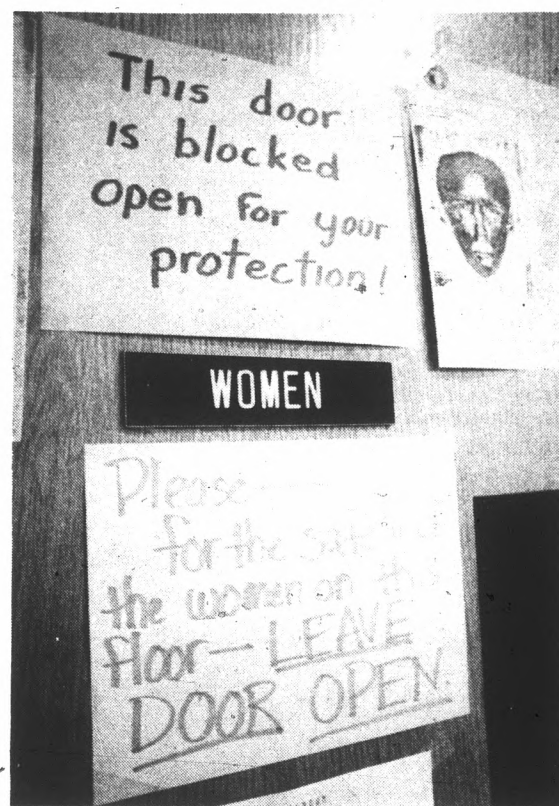 This door
is blocked
open for your
protection!
WOMEN
Please
for the safety of
the women on this
floor— LEAVE
DOOR OPEN.